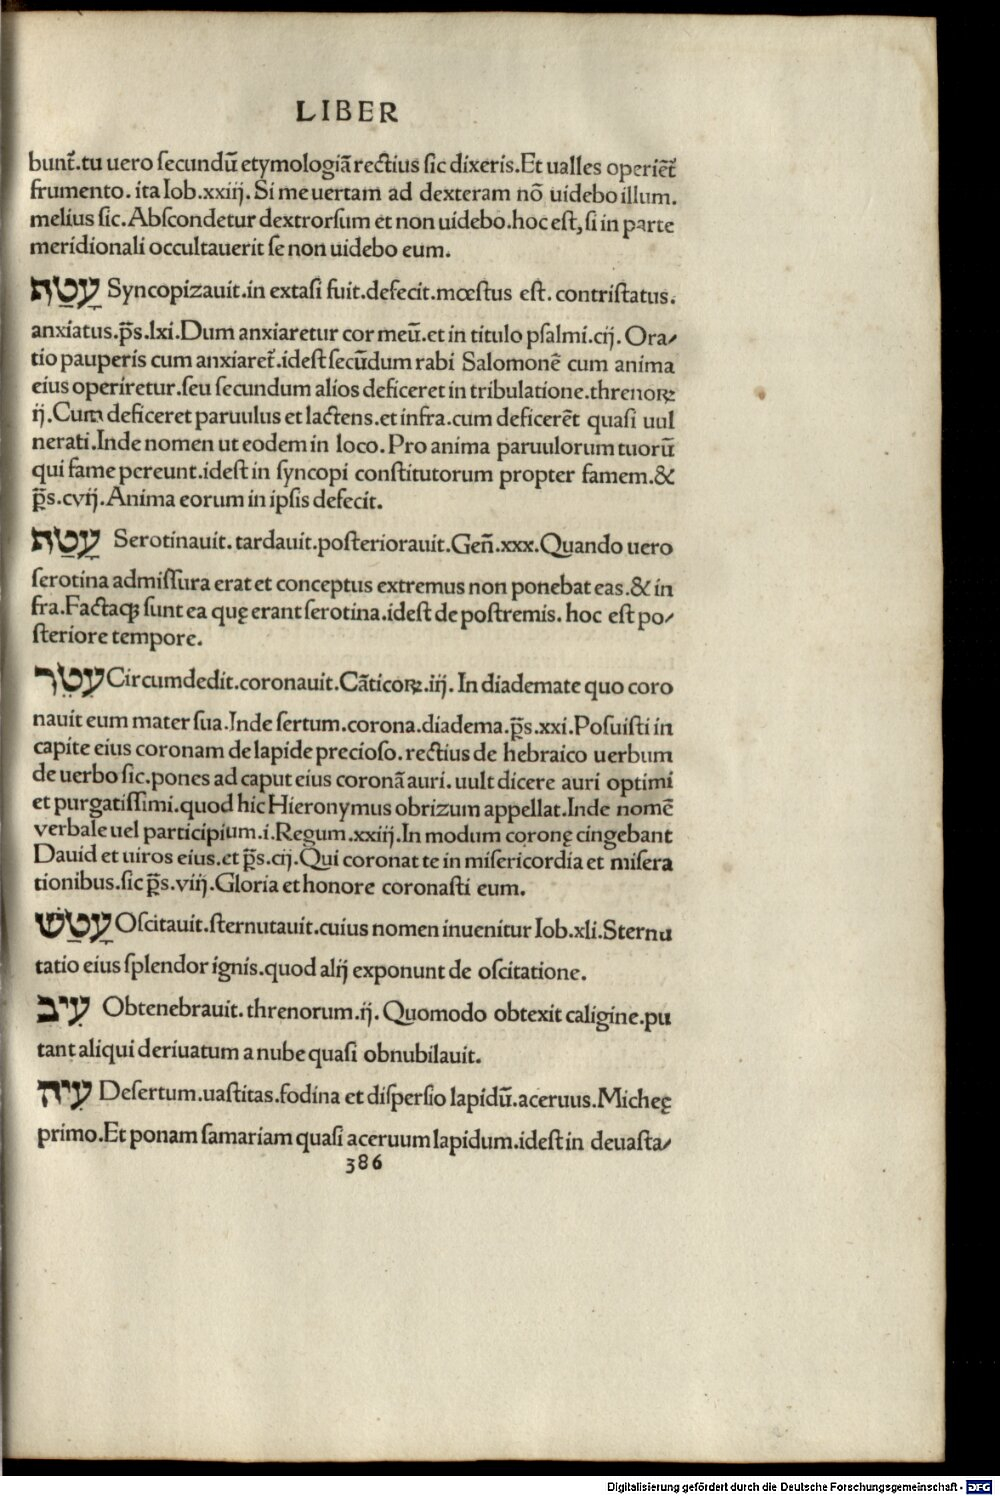 LIBER
bunt᷑.tu uero ſecundū etymologiā rectius ſic dixeris.Et ualles operiēt᷑
frumento. ita Iob.xxiij. Si me uertam ad dexteram nō uidebo illum.
melius ſic.Abſcondetur dextrorſum et non uidebo.hoc eſt,ſi in parte
meridionali occultauerit ſe non uidebo eum.
עָטַף Syncopizauit.in extaſi fuit.defecit.mœſtus eſt. contriſtatus.
anxiatus.p̄s.lxi.Dum anxiaretur cor meū.et in titulo pſalmi.cij. Ora/
tio pauperis cum anxiaret᷑.ideſt ſecūdum rabi Salomonē cum anima
eius operiretur.ſeu ſecundum alios deficeret in tribulatione.threnoꝝ
ij.Cum deficeret paruulus et lactens.et infra.cum deficerēt quaſi uul
nerati.Inde nomen ut eodem in loco. Pro anima paruulorum tuorū
qui fame pereunt.ideſt in ſyncopi conſtitutorum propter famem.&
p̄s.cvij.Anima eorum in ipſis defecit.
עָטַף Serotinauit. tardauit.poſteriorauit.Geñ.xxx.Quando uero
ſerotina admiſſura erat et conceptus extremus non ponebat eas.& in
fra.Factaqꝫ ſunt ea quę erant ſerotina.ideſt de poſtremis. hoc eſt po/
ſteriore tempore.
עִטֵּר Circumdedit.coronauit.Cāticoꝝ.iij. In diademate quo coro
nauit eum mater ſua.Inde ſertum.corona.diadema.p̄s.xxi.Poſuiſti in
capite eius coronam de lapide precioſo.rectius de hebraico uerbum
de uerbo ſic.pones ad caput eius coronā auri. uult dicere auri optimi
et purgatiſſimi.quod hic Hieronymus obrizum appellat.Inde nomē
verbale uel participium.i.Regum.xxiij.In modum coronę cingebant
Dauid et uiros eius.et p̄s.cij.Qui coronat te in miſericordia et miſera
tionibus.ſic p̄s.viij.Gloria et honore coronaſti eum.
עָטַשׁ Oſcitauit.ſternutauit.cuius nomen inuenitur Iob.xli.Sternu
tatio eius ſplendor ignis.quod alij exponunt de oſcitatione.
עִיב Obtenebrauit. threnorum.ij. Quomodo obtexit caligine.pu
tant aliqui deriuatum a nube quaſi obnubilauit.
עִיה Deſertum.uaſtitas.fodina et diſperſio lapidū.aceruus.Micheę
primo.Et ponam ſamariam quaſi aceruum lapidum.ideſt in deuaſta/
386
Digitalisierung gefördert durch die Deutsche Forschungsgemeinschaft - DFG